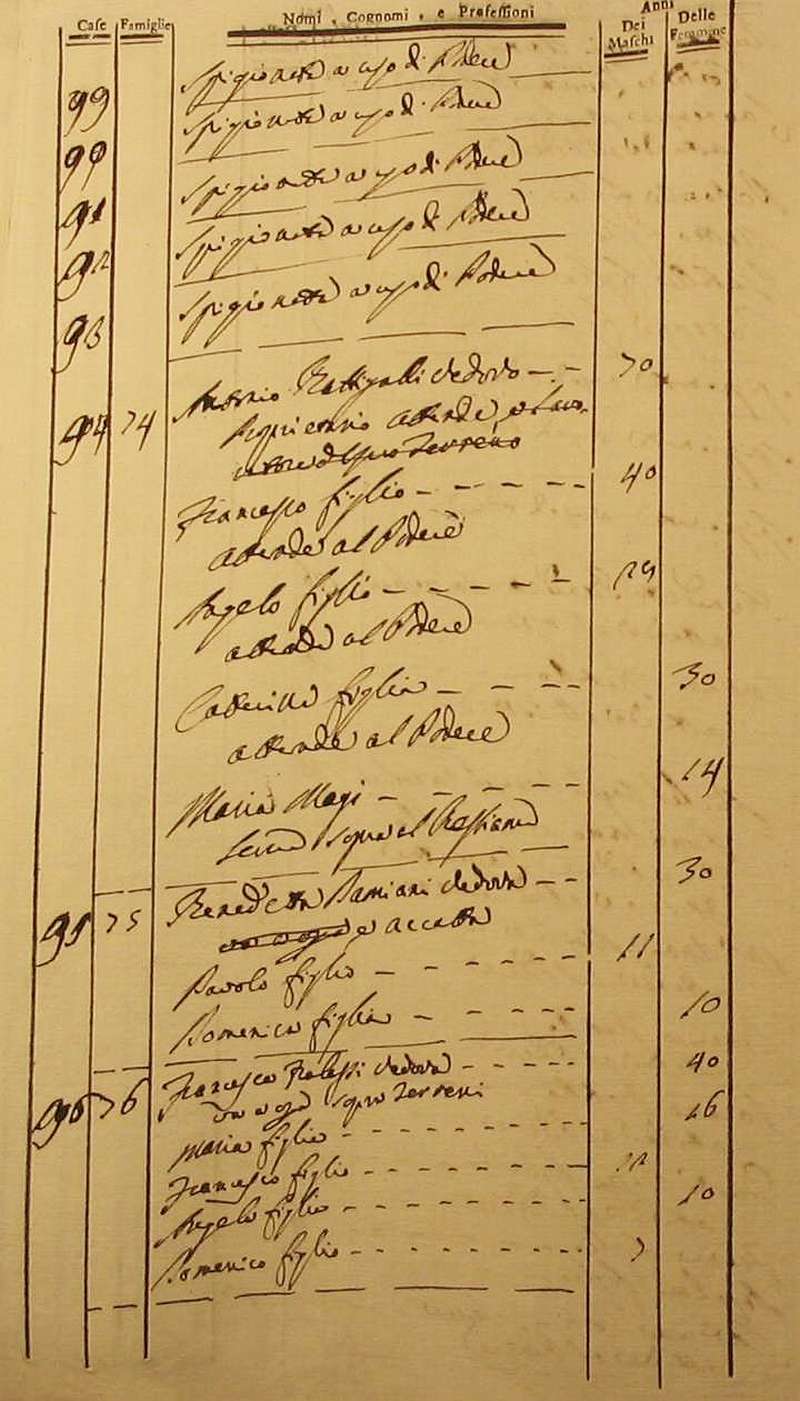 Case Famiglie Nomi, Cognomi, e Professioni Anni Dei Maschi Delle Femmine
Spigionata a uso di Podere
99
Spigionata a uso di Podere
90
Spigionata a uso di Podere
91
Spigionata a uso di Podere
92
Spigionata a uso di Podere
93
94 74 Antonio vedovo - - 70
attende
suo Terreno
Francesco figlio - - - - - 40
attende al Podere
Angelo figlio - - - - - 29
attende al Podere
Catterina figlia - - - - 30
attende al Podere
Maria Magi - - - - - 14
Serva
95 75 Benedetta Damiani vedova - - 30
accatta
Pavolo figlio - - - - - 11
Domenica figlia - - - - - 10
96 76 Francesca vedova - - - - - 40
a opra sopra Terreni
Maria figlia - - - - - - - 16
Francesco figlio - - - - - - - 12
Angelo figlio - - - - - - - 10
Domenico figlio - - - - - - - 7